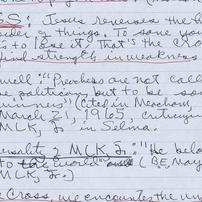 SS: Jesus reverses the
order of things. To save you
is to lose it. That's the Cro
find strength in weakness
well: "Preachers are not calle
be politicians but to be so
winners" (cited in Meacham,
March 21, 1965, critiquin
MLK, Jr. in Selma.
ersonality of MLK, Jr.: "He belo
to the world" (BE, May
MLK, Jr.)
e Cross, we encounter the un